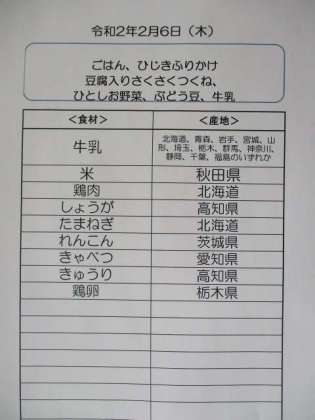 令和2年2月6日（木）
ごはん、ひじきふりかけ
豆腐入りさくさくつくね、
ひとしお野菜、ぶどう豆、牛乳
＜食材＞ ＜産地＞
牛乳 北海道、青森、岩手、宮城、山
形、埼玉、栃木、群馬、神奈川、
静岡、千葉、福島のいずれか
米 秋田県
鶏肉 北海道
しょうが 高知県
たまねぎ 北海道
れんこん 茨城県
きゃべつ 愛知県
きゅうり 高知県
鶏卵 栃木県